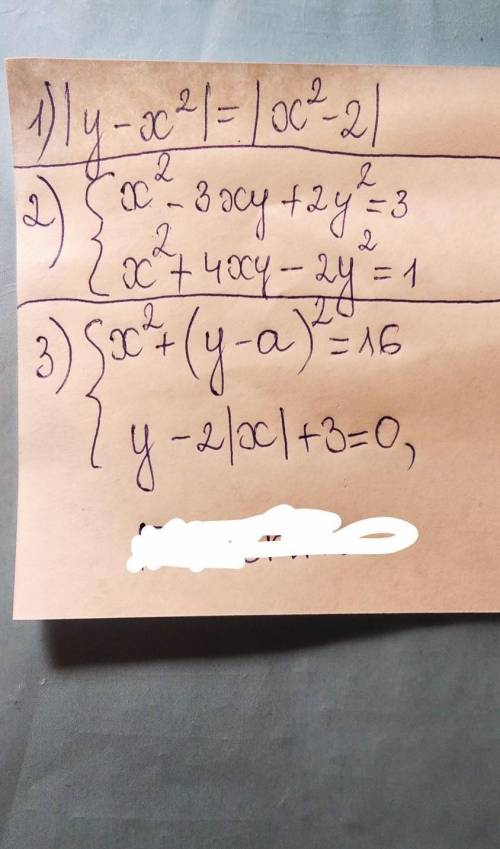 1) |y - x² | = | x² - 2|
2) { x² - 3xy + 2y² = 3
x² + 4xy - 2y² = 1
3) { x² + (y - a)² = 16
y - 2|x| + 3 = 0,